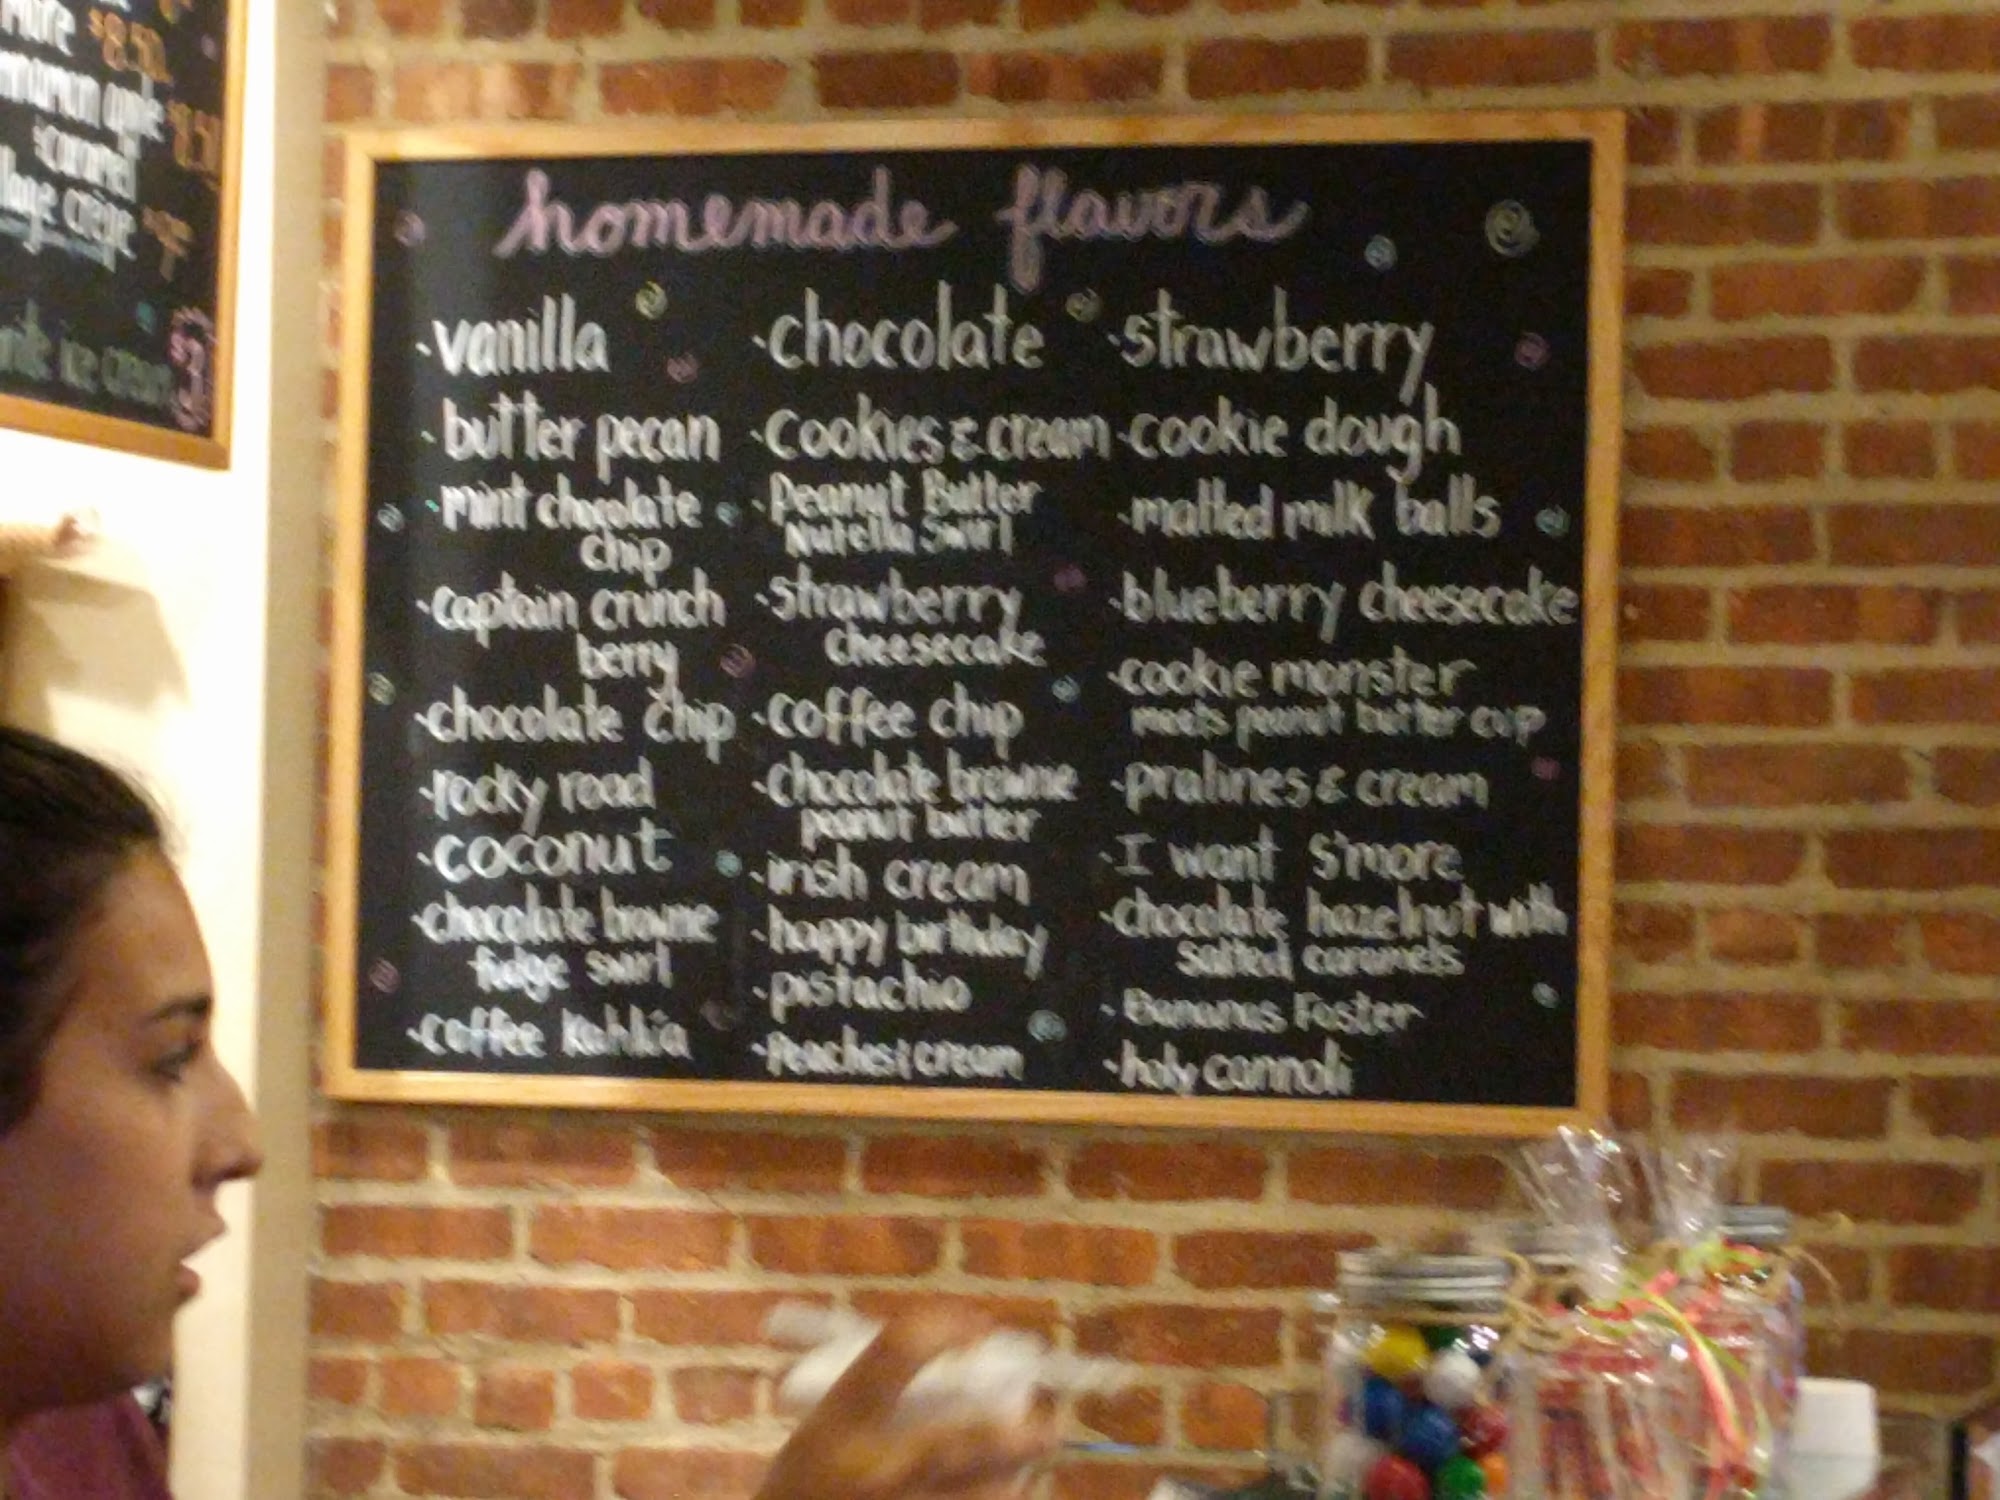 $8.50
apple
caramel
crepe
ice cream
homemade flavors
·vanilla
·butter pecan
·mint chocolate
chip
·captain crunch
berry
·chocolate chip
·rocky road
·coconut
·chocolate browne
fudge swirl
·coffee Kahlúa
·chocolate
·Cookies & cream
·Peanut Butter
Nutella Swirl
·strawberry
cheesecake
·coffee chip
·chocolate browne
peanut butter
·irish cream
·happy birthday
·pistachio
·Peaches & cream
·strawberry
·cookie dough
·malted milk balls
·blueberry cheesecake
·cookie monster
meets peanut butter cup
·pralines & cream
·I want S'more
·chocolate hazelnut with
salted caramels
·Bananas Foster
·holy cannoli